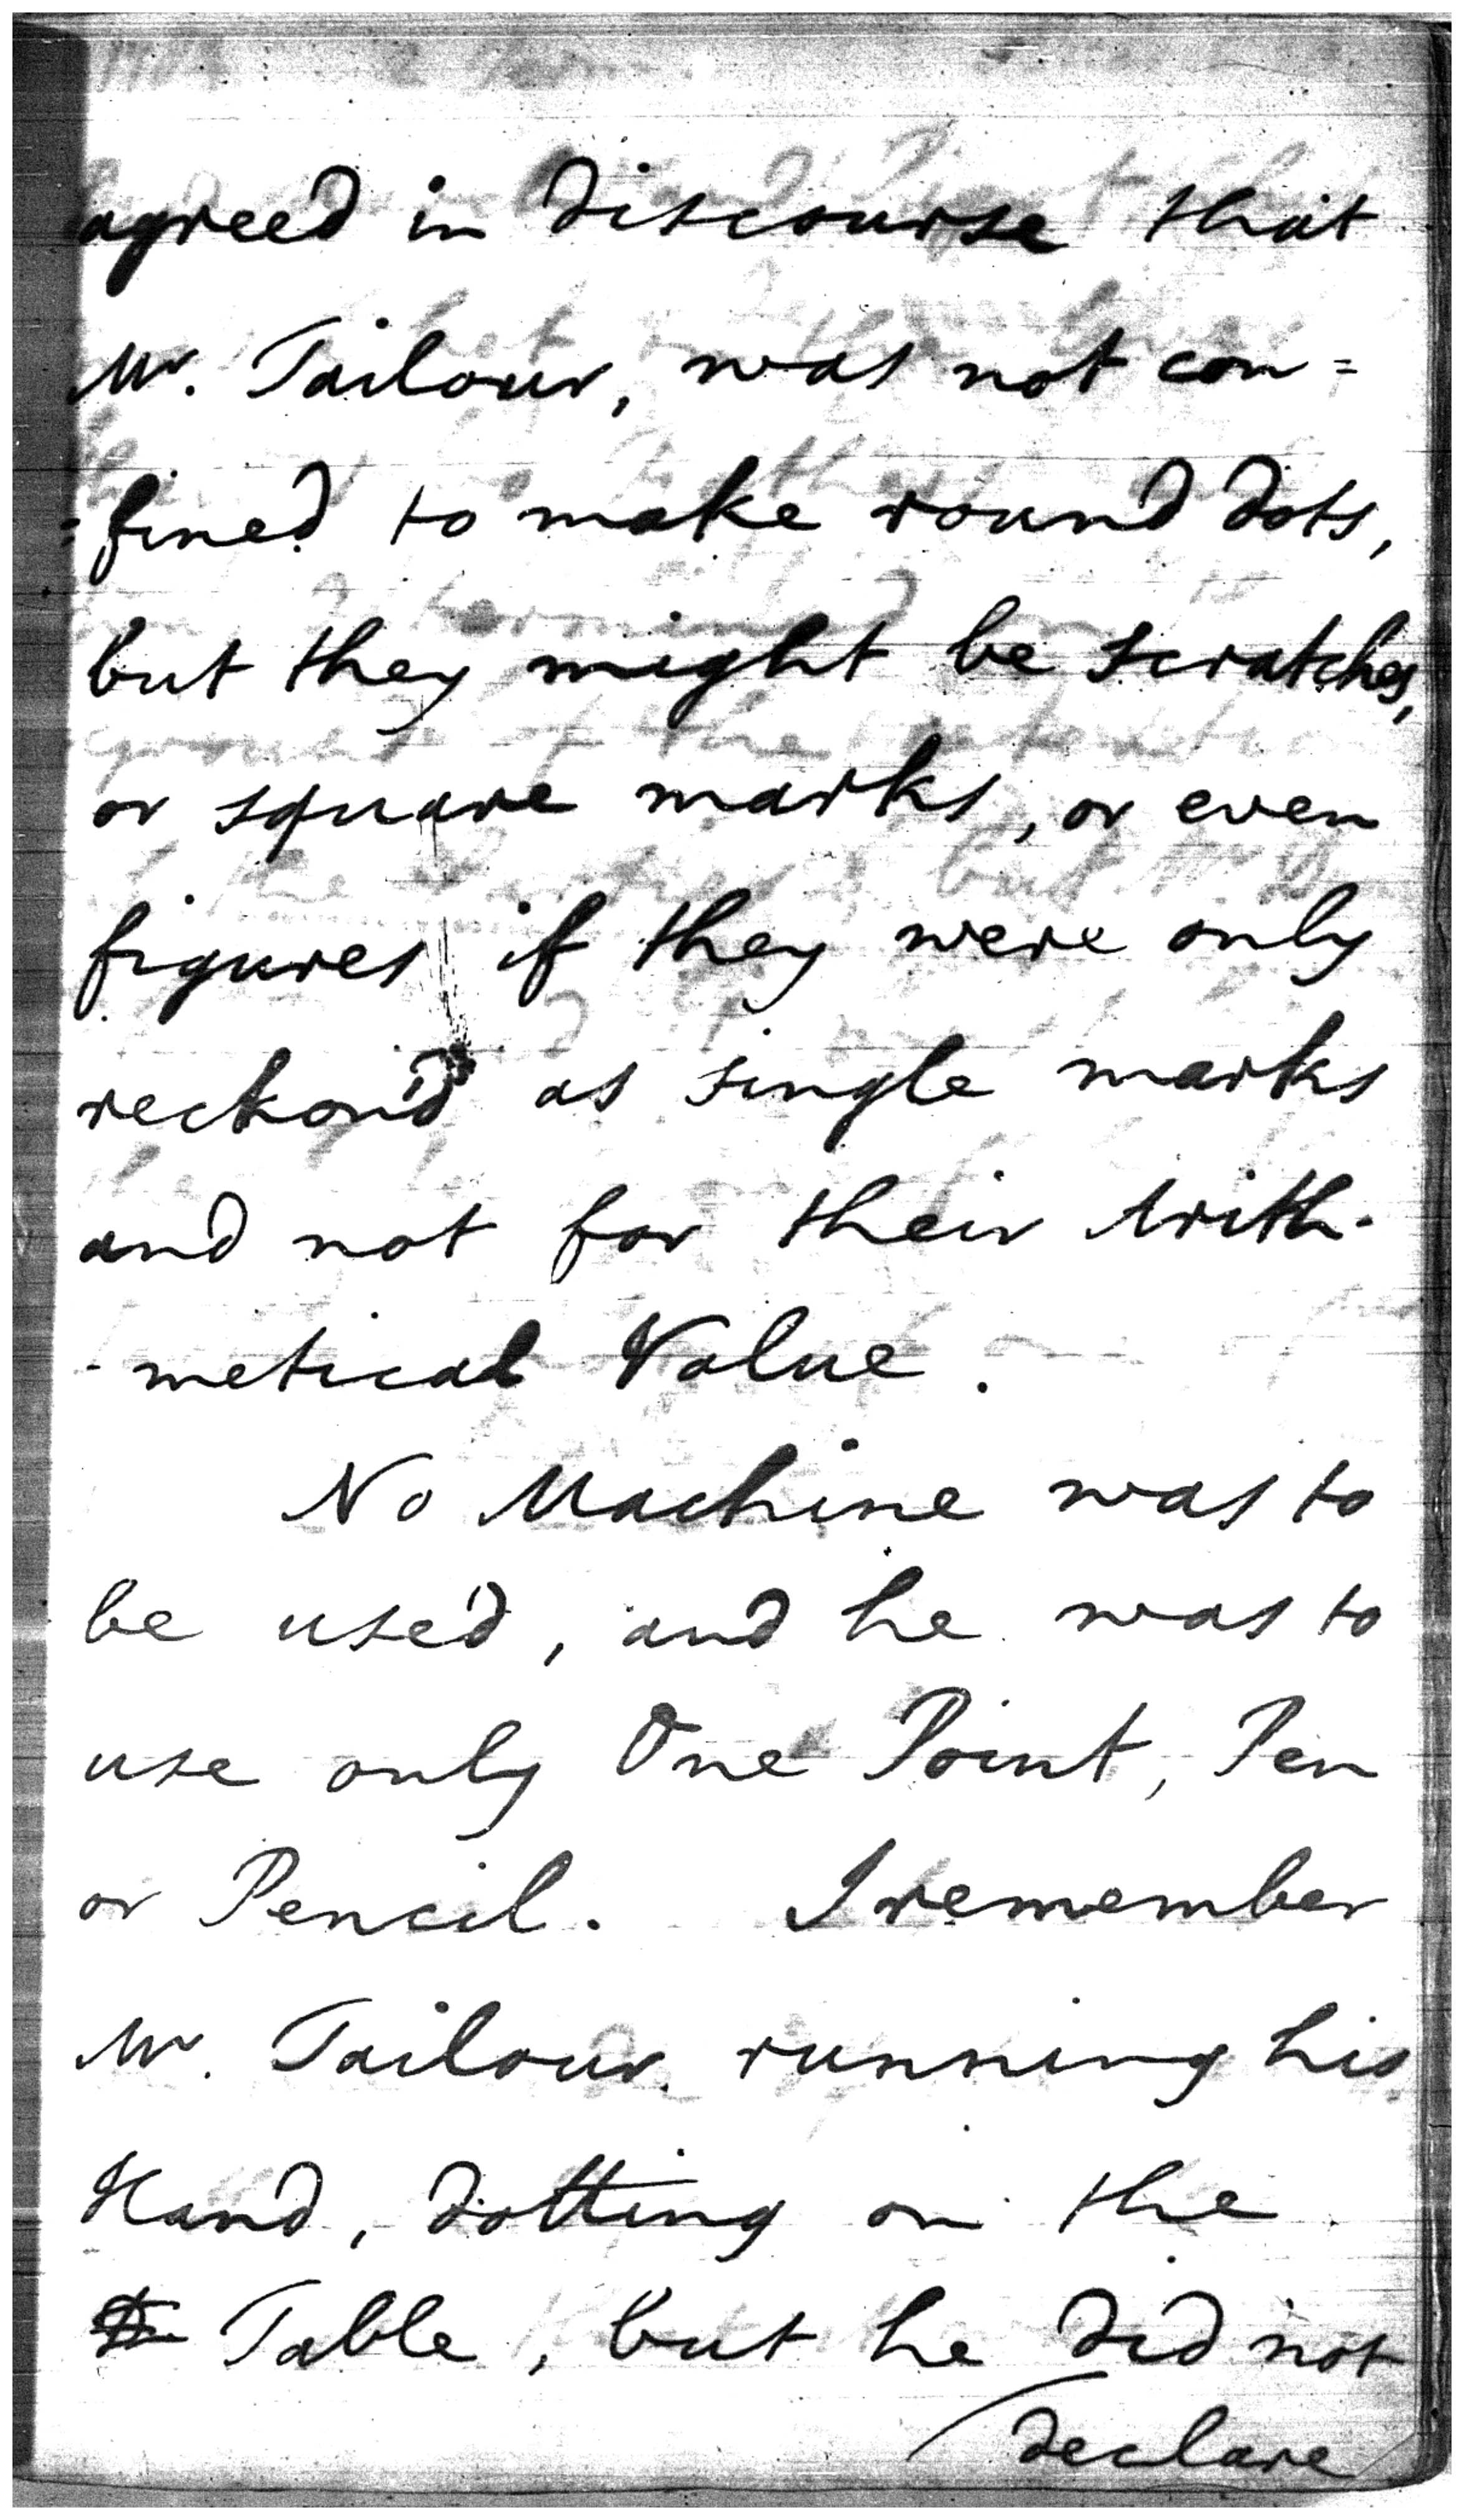 agreed in discourse that
Mr. Tailour, was not con=
=fined to make round dots,
but they might be scratches,
or square marks, or even
figures if they were only
reckon'd as single marks
and not for their Arith-
-metical Value.
No Machine was to
be use'd, and he was to
use only One Point, Pen
or Pencil. I remember
Mr. Tailour running his
Hand, dotting on the
Table, but he did not
declare